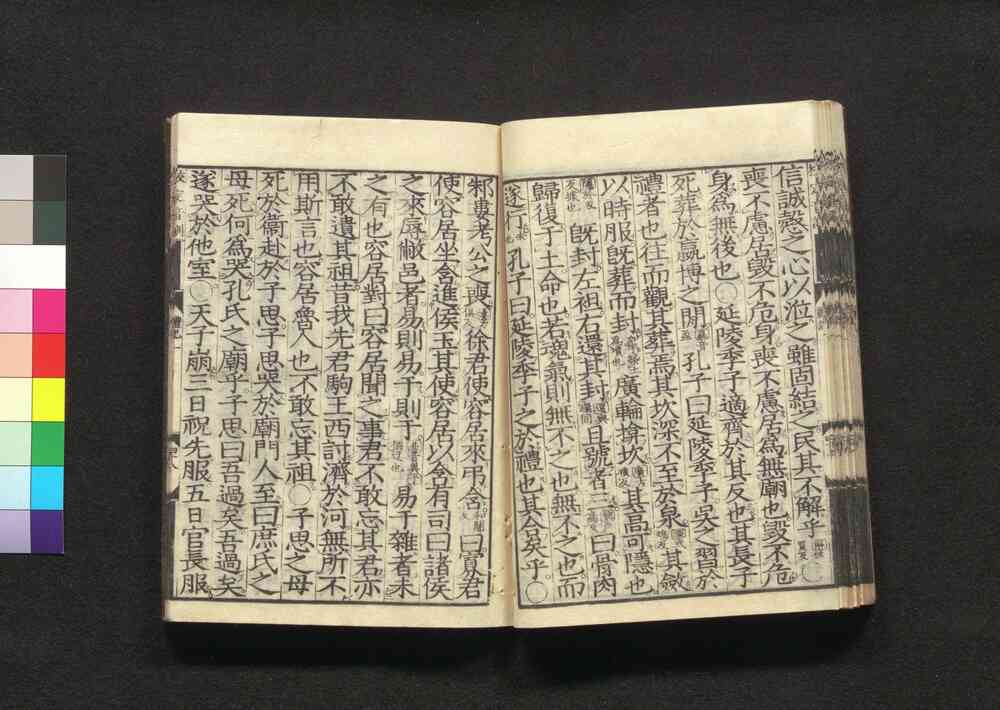 信誠慤之心以涖之雖固結之民其不解乎〇
喪不慮居毀不危身喪不慮居爲無廟也毀不危
身爲無後也〇延陵季子適齊於其反也其長子
死葬於嬴博之間孔子曰延陵季子吳之習於
禮者也往而觀其葬焉其坎深不至於泉其斂
以時服旣葬而封廣輪揜坎其高可隱也
旣封左袒右還其封且號者三曰骨肉
歸復于土命也若魂氣則無不之也無不之也而
遂行孔子曰延陵季子之於禮也其合矣乎〇
邾婁考公之喪徐君使容居來弔含曰寡君
使容居坐含進侯玉其使容居以含有司曰諸侯
之來辱敝邑者易則易于則于易于雜者未
之有也容居對曰容居聞之事君不敢忘其君亦
不敢遺其祖昔我先君駒王西討濟於河無所不
用斯言也容居魯人也不敢忘其祖〇子思之母
死於衞赴於子思子思哭於廟門人至曰庶氏之
母死何爲哭孔氏之廟乎子思曰吾過矣吾過矣
遂哭於他室〇天子崩三日祝先服五日官長服